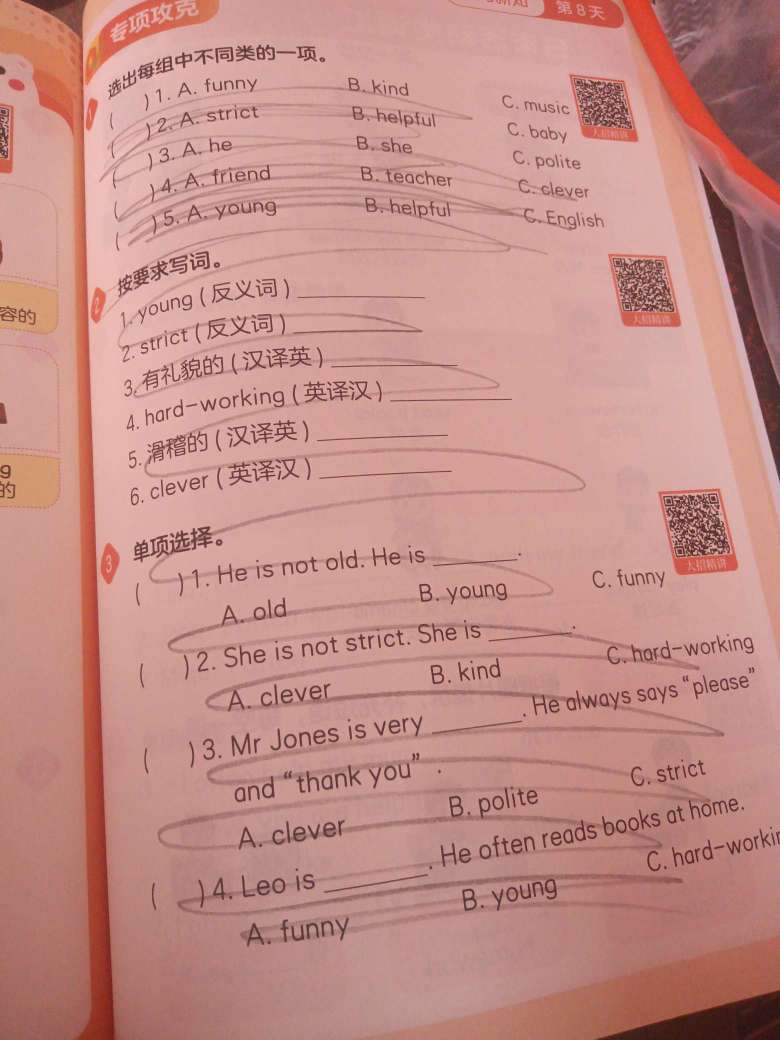 专项攻克
第8天
选出每组中不同类的一项。
1
( ) 1. A. funny B. kind C. music
( ) 2. A. strict B. helpful C. baby
( ) 3. A. he B. she C. polite
( ) 4. A. friend B. teacher C. clever
( ) 5. A. young B. helpful C. English
大招精讲
2 按要求写词。
1. young ( 反义词 ) ________
2. strict ( 反义词 ) ________
3. 有礼貌的 ( 汉译英 ) ________
4. hard-working ( 英译汉 ) ________
5. 滑稽的 ( 汉译英 ) ________
6. clever ( 英译汉 ) ________
大招精讲
3 单项选择。
( ) 1. He is not old. He is ________.
A. old B. young C. funny
大招精讲
( ) 2. She is not strict. She is ________.
A. clever B. kind C. hard-working
( ) 3. Mr Jones is very ________. He always says “please”
and “thank you” .
A. clever B. polite C. strict
( ) 4. Leo is ________. He often reads books at home.
A. funny B. young C. hard-workin
容的
g
的